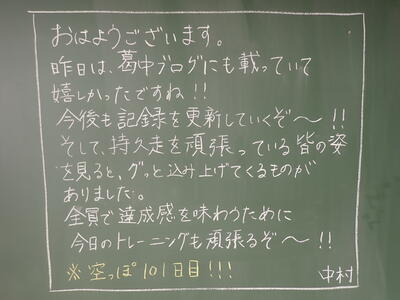 おはようございます。
昨日は、葛中ブログにも載っていて
嬉しかったですね!!
今後も記録を更新していくぞ〜!!
そして、持久走を頑張っている皆の姿
を見ると、グッと込み上げてくるものが
ありました。
全員で達成感を味わうために
今日のトレーニングも頑張るぞ〜!!
※空っぽ101日目!!!
中村